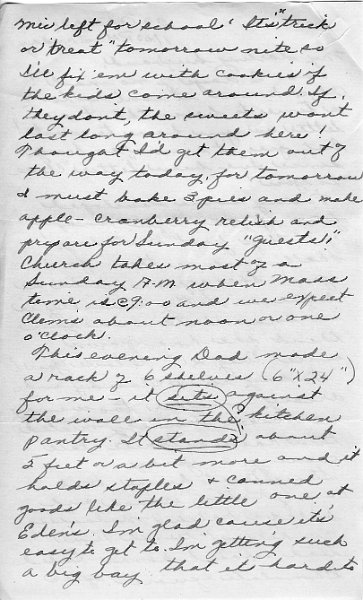 Mis left for school! It's "trick
or treat" tomorrow nite so
I'll fix 'em with cookies if
the kids come around. If
they dont, the sweets wont
last long around here!
Thought I'd get them out of
the way today, for tomorrow
I must bake 3 pies and make
apple-cranberry relish and
prepare for Sunday "guests"!
Church takes most of a
Sunday A.M when Mass
time is @ 9:00 and we expect
Clems about noon or one
o'clock.
This evening Dad made
a rack of 6 shelves (6" X 24")
for me - it sets against
the wall in the kitchen
pantry. It stands? about
5 feet or a bit more and it
holds staples & canned
goods like the little one at
Eden's. I'm glad cause it's
easy to get to. I'm getting such
a big bay that it hard to